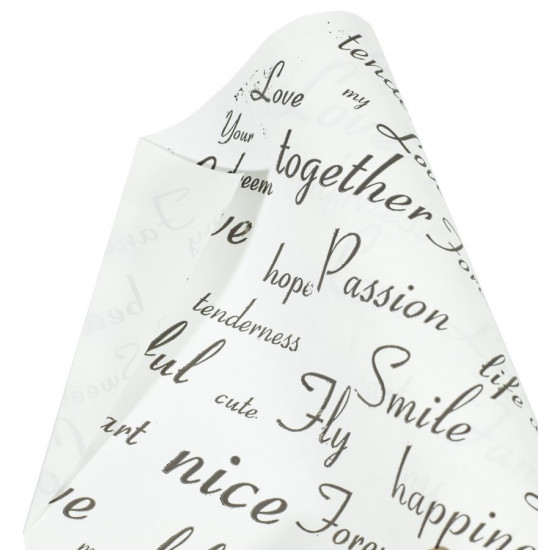 tende
Love
my
Love
Your
together
eem
ve
hope
Passion
tenderness
life
ful
Smile
cute
Fly
art
nice
happin
ve
Forev